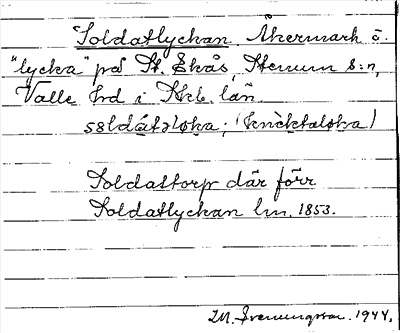 Soldatlyckan, Åkermark o.
"lycka" på St. Ekås, Stenum s:n,
Valle hrd i Skb. län.
soldátəløka; (knècktaløka)
Soldattorp där förr
Soldatlyckan lm. 1853.
Svenungsson. 1944.